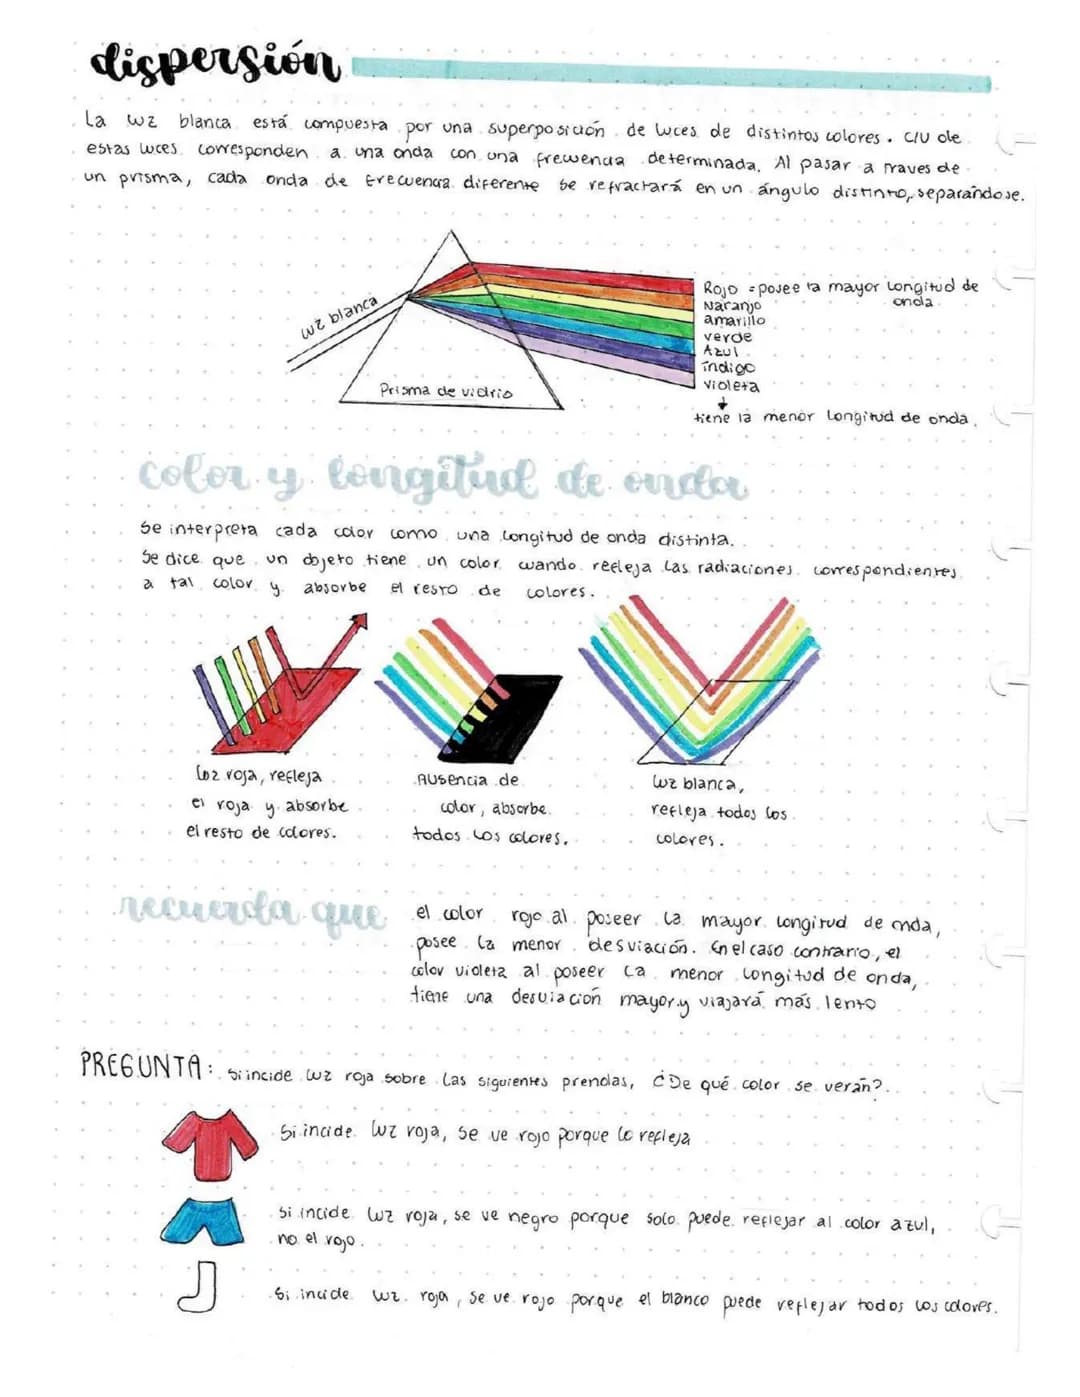 dispersión
La luz blanca está compuesta por una superposición de luces de distintos colores. c/u de
estas luces corresponden a una onda con una frecuencia determinada. Al pasar a traves de
un prisma, cada onda de frecuencia diferente se refractará en un ángulo distinto, separándose.
luz blanca
Prisma de vidrio
Rojo = posee la mayor longitud de
onda
Naranjo
amarillo
verde
Azul
índigo
violeta
↓
tiene la menor longitud de onda.
color y longitud de onda
Se interpreta cada color como una longitud de onda distinta.
Se dice que un objeto tiene un color cuando refleja las radiaciones correspondientes
a tal color y absorbe el resto de colores.
Luz roja, refleja
el roja y absorbe
el resto de colores.
Ausencia de
color, absorbe
todos los colores.
Luz blanca,
refleja todos los
colores.
recuerda que
el color rojo al poseer la mayor longitud de onda,
posee la menor desviación. En el caso contrario, el
color violeta al poseer la menor longitud de onda,
tiene una desviación mayor y viajará más lento
PREGUNTA: Si incide luz roja sobre las siguientes prendas, ¿De qué color se verán?
Si incide luz roja, se ve rojo porque lo refleja
Si incide luz roja, se ve negro porque solo puede reflejar al color azul,
no el rojo.
Si incide luz roja, se ve rojo porque el blanco puede reflejar todos los colores.